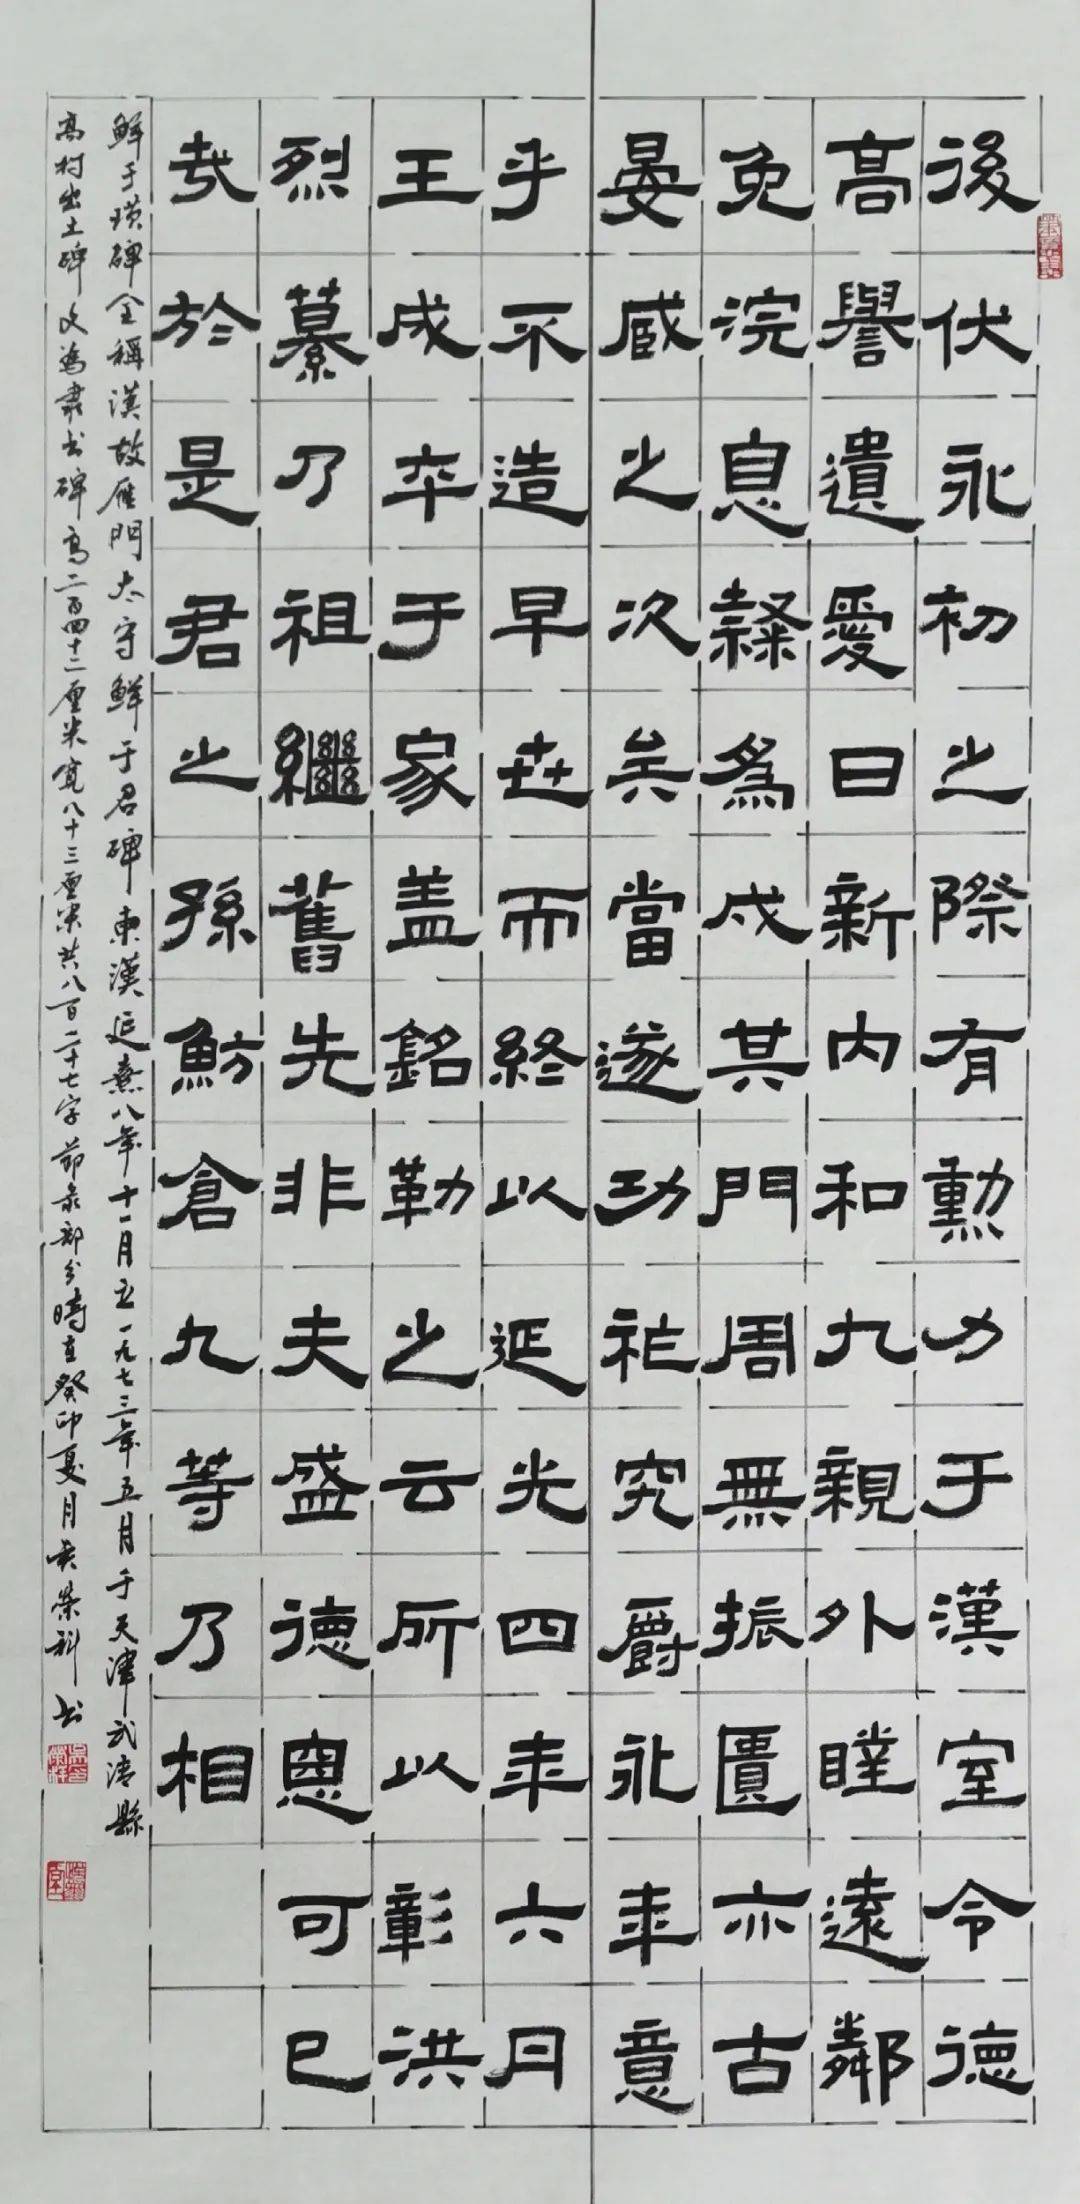 後伏永初之際有勲力于漢室令德
高譽遺愛日新内和九親外睦遠鄰
免浣息隸為成其門周無振匱亦古
晏臧之次矣當遂功祚究爵永年意
乎不造早世而終以延光四年六月
壬戌卒于家盖銘勒之云所以彰洪
烈纂乃祖繼舊先非夫盛德惡可已
哉於是君之孫魴倉九等乃相
鮮于璜碑全稱漢故雁門太守鮮于君碑東漢延熹八年十一月立一九七三年五月于天津武清縣
高村出土碑文為隶书碑高二百四十二厘米寬八十三厘米共八百二十七字節录部分時在癸卯夏月榮科书